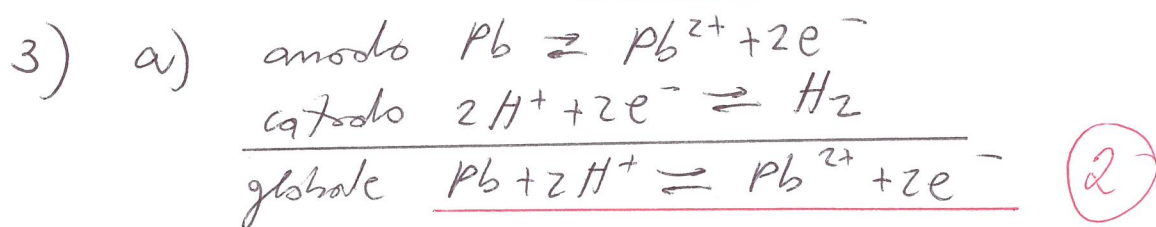 3) a) anodo Pb ⇄ Pb²⁺ + 2e⁻
catodo 2H⁺ + 2e⁻ ⇌ H₂
globale Pb + 2H⁺ ⇌ Pb²⁺ + 2e⁻ 2⁻